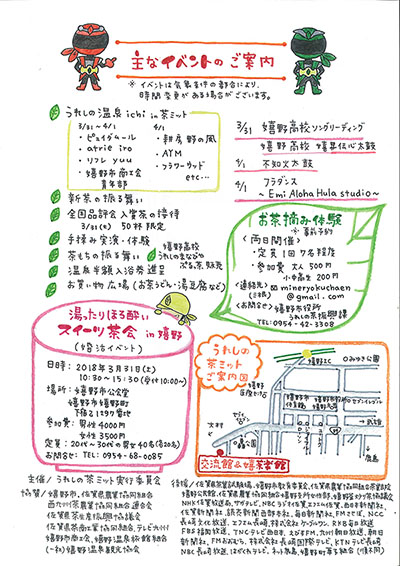 主なイベントのご案内
※イベントは気象条件の都合により、
時間変更がある場合がございます。
うれしの温泉 ichi in 茶ミット
3/31〜4/1
・ピュイダムール
・atrie iro
・リフレ yuu
・嬉野市商工会
青年部
4/1
・耕房 野の風
・AYM
・フラワーウッド
etc…
新茶の振る舞い
全国品評会入賞茶の接待
3/31(土) 50杯限定
手揉み実演・体験
茶もちの振る舞い
嬉野高校
うれしのまなび
ぷる茶販売
温泉半額入浴券進呈
お買い物広場(お茶どら・湯豆腐など)
3/31 嬉野高校ソングリーディング
嬉野高校 嬉昇伝心太鼓
4/1 不知火太鼓
4/1 フラダンス
〜Emi Aloha Hula studio〜
お茶摘み体験
※事前予約
〈両日開催〉
・定員 1回7名程度
・参加費 大人 500円
小中高生 200円
〈連絡先〉✉ mineryokuchaen
@gmail.com
〈お問合せ〉嬉野市役所
うれしの茶振興課
TEL 0954-42-3308
湯ったりほろ酔い
スイーツ茶会 in 嬉野
(婚活イベント)
日時:2018年3月31日(土)
10:30〜15:30(受付10:00〜)
場所:嬉野市公会堂
嬉野市嬉野町
下宿乙1297番地
参加費:男性 4000円
女性 3500円
定員:20代〜30代の男女40名(各20名)
お問合せ:TEL:0954-68-0085
うれしの
茶ミット
ご案内図
嬉野IC
みゆき公園
嬉野
大村
武雄
鹿島
交流館&嬉茶楽館
主催/うれしの茶ミット実行委員会
協賛/嬉野市、佐賀県農業協同組合
西九州茶農業協同組合連合会
佐賀県茶生産振興協議会
佐賀県茶商工業協同組合、テレビ九州
嬉野市商工会、嬉野温泉旅館組合
(一社)嬉野温泉観光協会
後援/佐賀県茶業試験場、嬉野市教育委員会、佐賀県農業協同組合茶業課
NHK佐賀放送局、サガテレビ、NBCラジオ佐賀、エフエム佐賀、西日本新聞社、
佐賀新聞社、読売新聞西部本社、毎日新聞社、FMさせぼ、NCC
長崎文化放送、エフエム長崎、株式会社ケーブルワン、RKB毎日放送
FBS福岡放送、TNCテレビ西日本、えびすFM、九州朝日放送、朝日
新聞社、FMおおむら、株式会社長崎国際テレビ、KTNテレビ長崎
NBC長崎放送、ほがくれテレビ、ネット鹿島、嬉野町茶商組合(順不同)